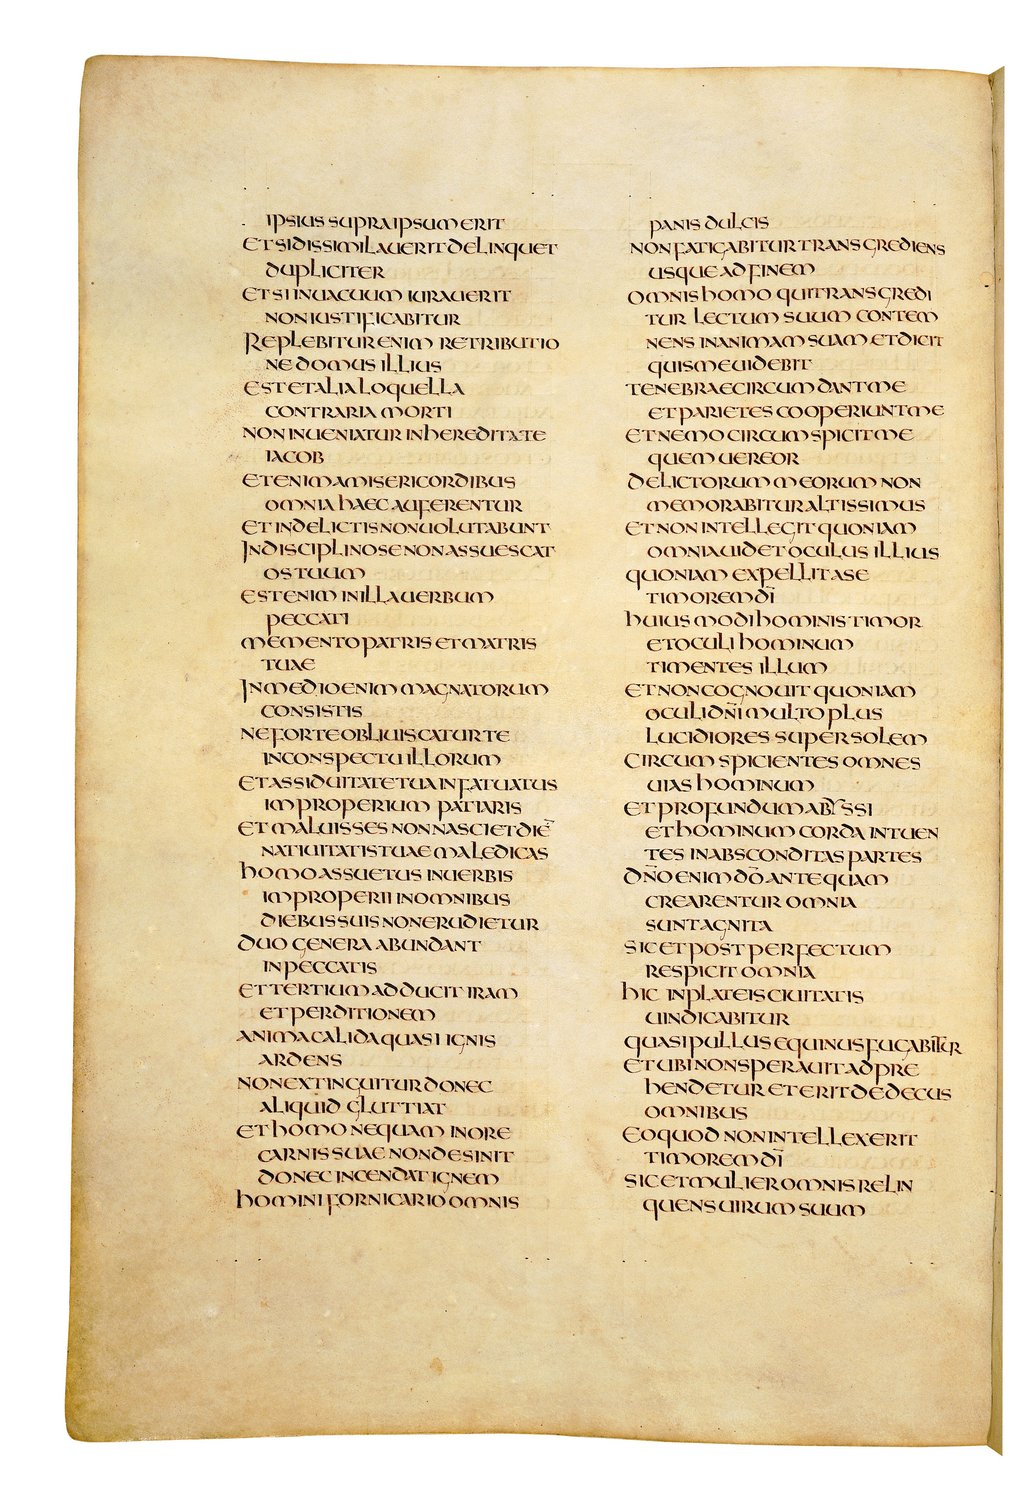 IPSIUS SUPRA IPSUM ERIT
ET SI DISSIMILAUERIT DELINQUET
DUPLICITER
ET SI IN UACUUM IURAUERIT
NON IUSTIFICABITUR
REPLEBITUR ENIM RETRIBUTIO
NE DOMUS ILLIUS
EST ET ALIA LOQUELLA
CONTRARIA MORTI
NON INUENIATUR IN HEREDITATE
IACOB
ETENIM A MISERICORDIBUS
OMNIA HAEC AUFERENTUR
ET IN DELICTIS NON UOLUTABUNT
INDISCIPLINOSE NON ASSUESCAT
OS TUUM
EST ENIM IN ILLA UERBUM
PECCATI
MEMENTO PATRIS ET MATRIS
TUAE
IN MEDIO ENIM MAGNATORUM
CONSISTIS
NE FORTE OBLIUISCATUR TE
IN CONSPECTU ILLORUM
ET ASSIDUITATE TUA INFATUATUS
IMPROPERIUM PATIARIS
ET MALUISSES NON NASCI ET DIĒ
NATIUITATIS TUAE MALEDICAS
HOMO ASSUETUS IN UERBIS
IMPROPERII IN OMNIBUS
DIEBUS SUIS NON ERUDIETUR
DUO GENERA ABUNDANT
IN PECCATIS
ET TERTIUM ADDUCIT IRAM
ET PERDITIONEM
ANIMA CALIDA QUASI IGNIS
ARDENS
NON EXTINGUITUR DONEC
ALIQUID GLUTTIAT
ET HOMO NEQUAM IN ORE
CARNIS SUAE NON DESINIT
DONEC INCENDAT IGNEM
HOMINI FORNICARIO OMNIS
PANIS DULCIS
NON FATIGABITUR TRANSGREDIENS
USQUE AD FINEM
OMNIS HOMO QUI TRANSGREDI
TUR LECTUM SUUM CONTEM
NENS IN ANIMAM SUAM ET DICIT
QUIS ME UIDEBIT
TENEBRAE CIRCUMDANT ME
ET PARIETES COOPERIUNT ME
ET NEMO CIRCUMSPICIT ME
QUEM UEREOR
DELICTORUM MEORUM NON
MEMORABITUR ALTISSIMUS
ET NON INTELLEGIT QUONIAM
OMNIA UIDET OCULUS ILLIUS
QUONIAM EXPELLIT A SE
TIMOREM DĪ
HUIUSMODI HOMINIS TIMOR
ET OCULI HOMINUM
TIMENTES ILLUM
ET NON COGNOUIT QUONIAM
OCULI DN̄I MULTO PLUS
LUCIDIORES SUPER SOLEM
CIRCUMSPICIENTES OMNES
UIAS HOMINUM
ET PROFUNDUM ABYSSI
ET HOMINUM CORDA INTUEN
TES IN ABSCONDITAS PARTES
DN̄O ENIM DŌ ANTEQUAM
CREARENTUR OMNIA
SUNT AGNITA
SIC ET POST PERFECTUM
RESPICIT OMNIA
HIC IN PLATEIS CIUITATIS
UINDICABITUR
QUASI PULLUS EQUINUS FUGABITUR
ET UBI NON SPERAUIT ADPRE
HENDETUR ET ERIT DEDECUS
OMNIBUS
EO QUOD NON INTELLEXERIT
TIMOREM DĪ
SIC ET MULIER OMNIS RELIN
QUENS UIRUM SUUM